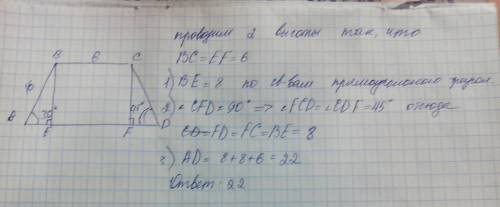 проводим 2 высоты так, что
BC = EF = 6
1) BE = 8 по св-вам прямоугольного
2) CFD = 90° => ∠FCD = ∠CDF = 45° отсюда
FD = FC = BE = 8
AD = 8+8+6 = 22
Ответ: 22
B 6 C
10
30° 45°
E F D